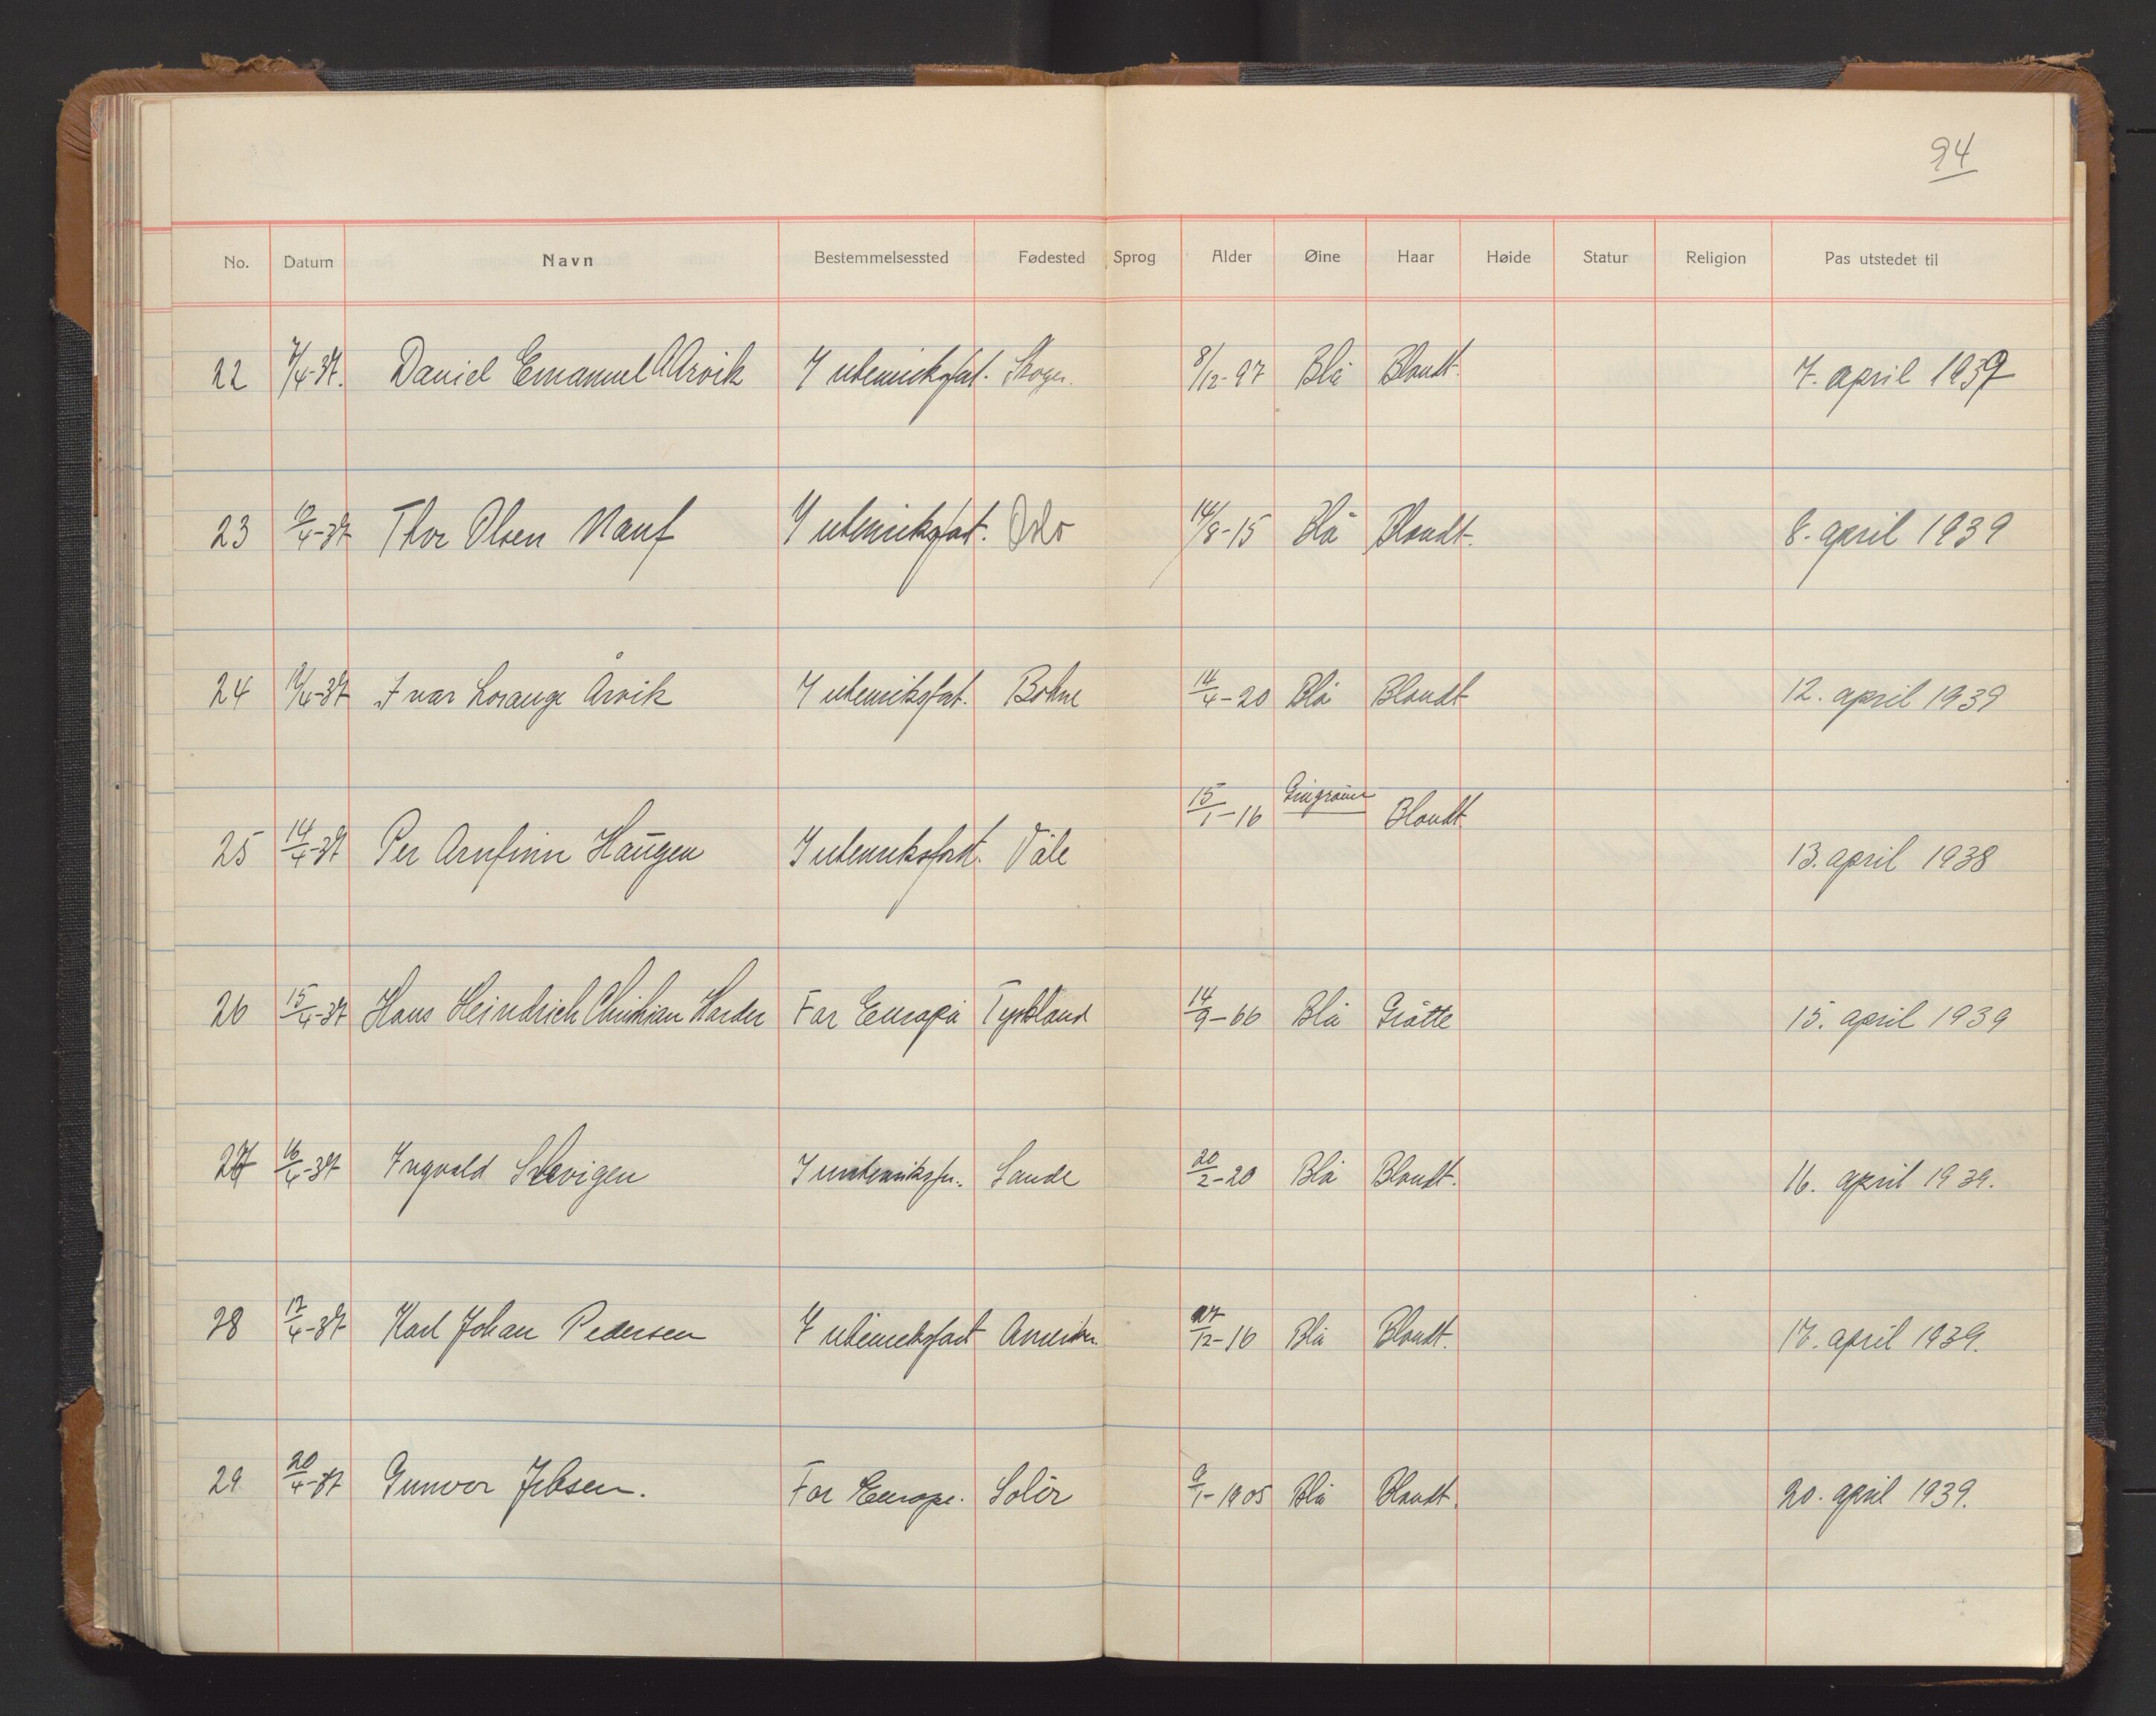 94
No. Datum Navn Bestemmelsessted Fødested Sprog Alder Øine Haar Høide Statur Religion Pas utstedet til
22 7/4-37. Daniel Emanuel Arvik I utenriksfat. Skoger. 8/12-97 Blå Blondt. 7. april 1939
23 /4-37 Thor Olsen Nauf I utenriksfat. Oslo 14/8-15 Blå Blondt. 8. april 1939
24 12/4-37 Ivar Lorange Årvik I utenriksfat. Botne 14/4-20 Blå Blondt 12. april 1939
25 14/4-37 Per Arnfinn Haugen I utenriksfart. Våle 15/1-16 Blondt. 13. april 1938
26 15/4-37 Hans Heindrich Christian Harder For Europa Tyskland 14/9-66 Blå Gråtte 15. april 1939
27 16/4-37 Ingvald Selvigen I utenriksfa. Sande 20/2-20 Blå Blondt. 16. april 1939.
28 17/4-37 Karl Johan Pedersen I utenriksfart Amerika. 27/12-16 Blå Blondt. 17. april 1939.
29 20/4-37 Gunvor Jebsen. For Europa. Solör 9/1-1905 Blå Blondt. 20. april 1939.